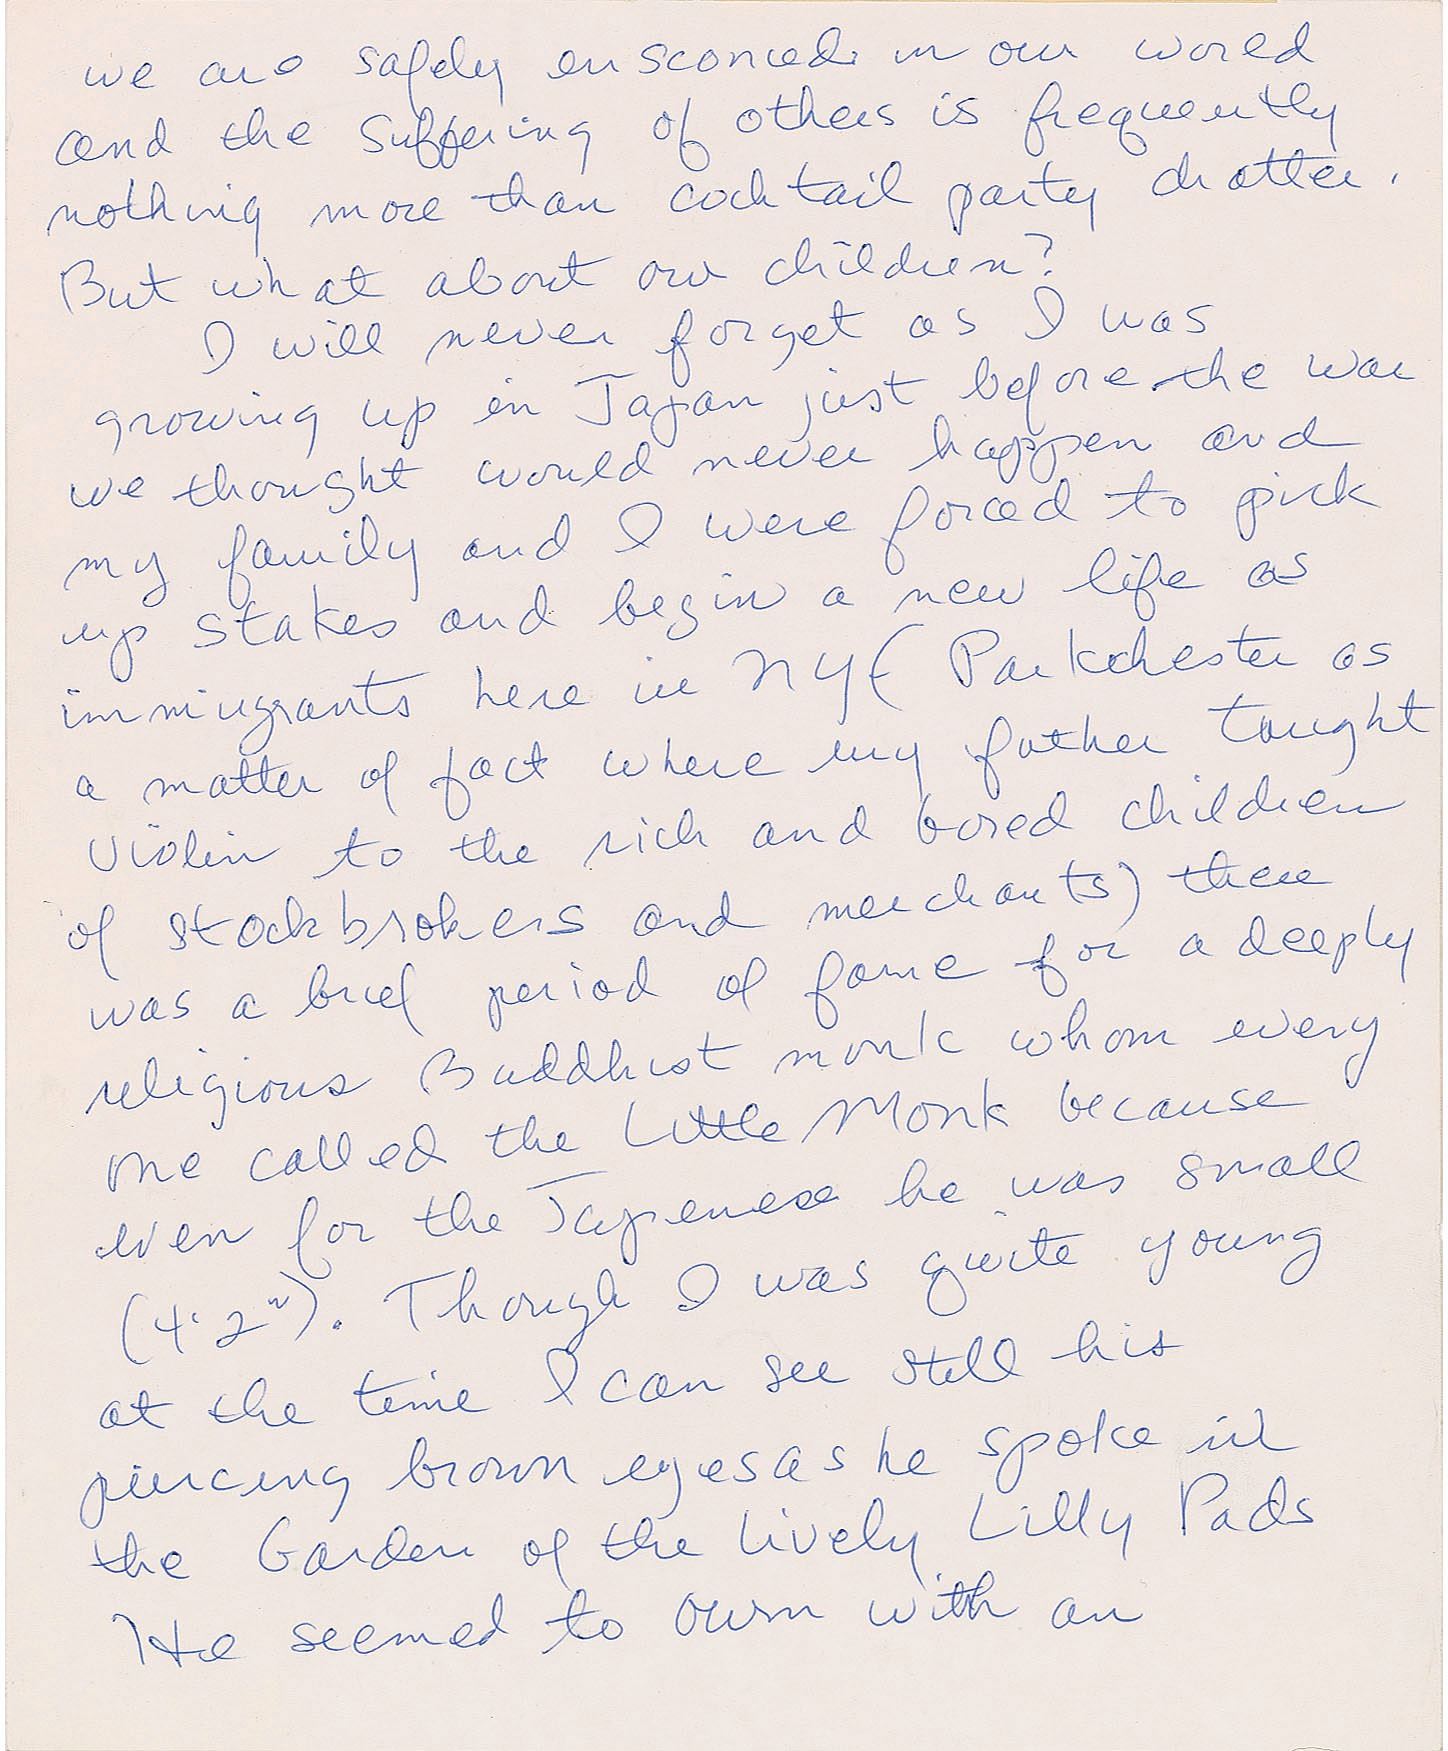 we are safely ensconced in our world
and the suffering of others is frequently
nothing more than cocktail party chatter.
But what about our children?
I will never forget as I was
growing up in Japan just before the war
we thought would never happen and
my family and I were forced to pick
up stakes and begin a new life as
immigrants here in NY (Parkchester as
a matter of fact where my father taught
violin to the rich and bored children
of stockbrokers and merchants) there
was a brief period of fame for a deeply
religious Buddhist monk whom every
one called the Little Monk because
even for the Japenese he was small
(4'2"). Though I was quite young
at the time I can see still his
piercing brown eyes as he spoke in
the Garden of the Lively Lilly Pads
He seemed to own with an